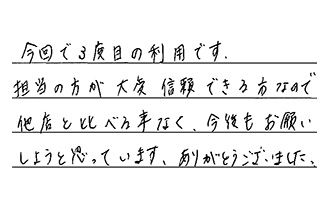 今回で3度目の利用です.
担当の方が大変信頼できる方なので
他店と比べる事なく、今後もお願い
しようと思っています、ありがとうございました、